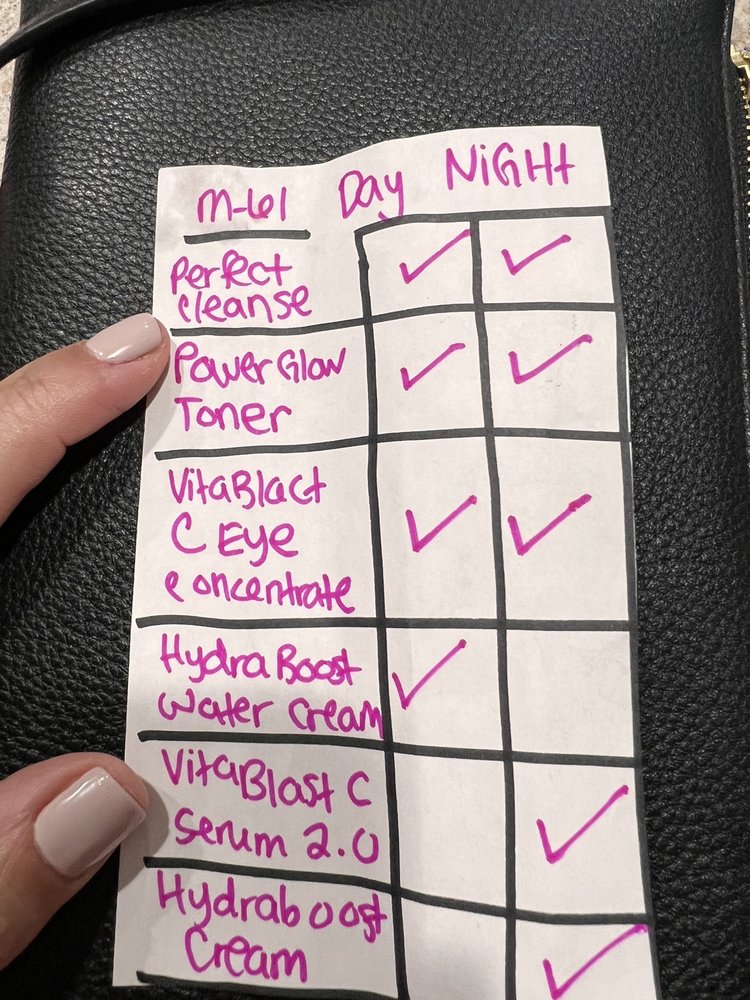 M-61 Day NiGHt
Perfect ✓ ✓
cleanse
Power Glow ✓ ✓
Toner
VitaBlact ✓ ✓
C Eye
concentrate
Hydra Boost ✓
Water Cream
VitaBlast C ✓
Serum 2.0
Hydraboost
Cream ✓